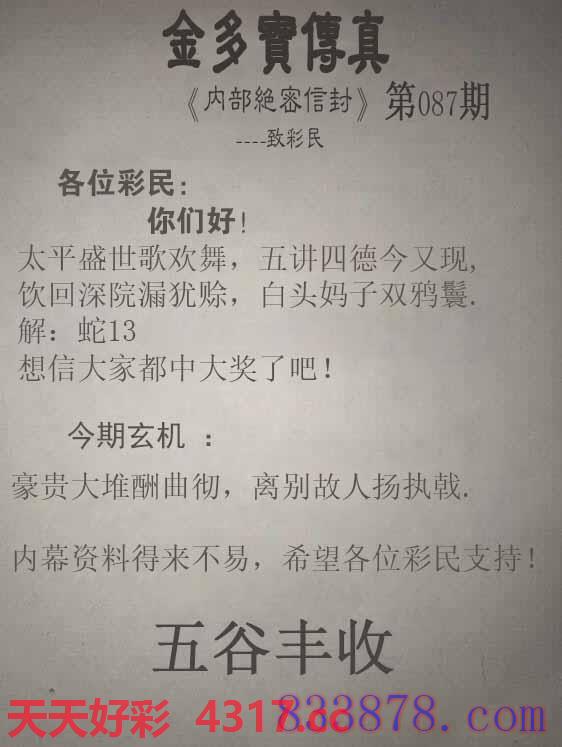 金多寳傳真
《内部絶密信封》第087期
----致彩民
各位彩民:
你们好!
太平盛世歌欢舞，五讲四德今又现,
饮回深院漏犹赊，白头妈子双鸦鬟.
解：蛇13
想信大家都中大奖了吧!
今期玄机 ：
豪贵大堆酬曲彻，离别故人扬执戟.
内幕资料得来不易，希望各位彩民支持!
五谷丰收
天天好彩 4317.cc
833878.com